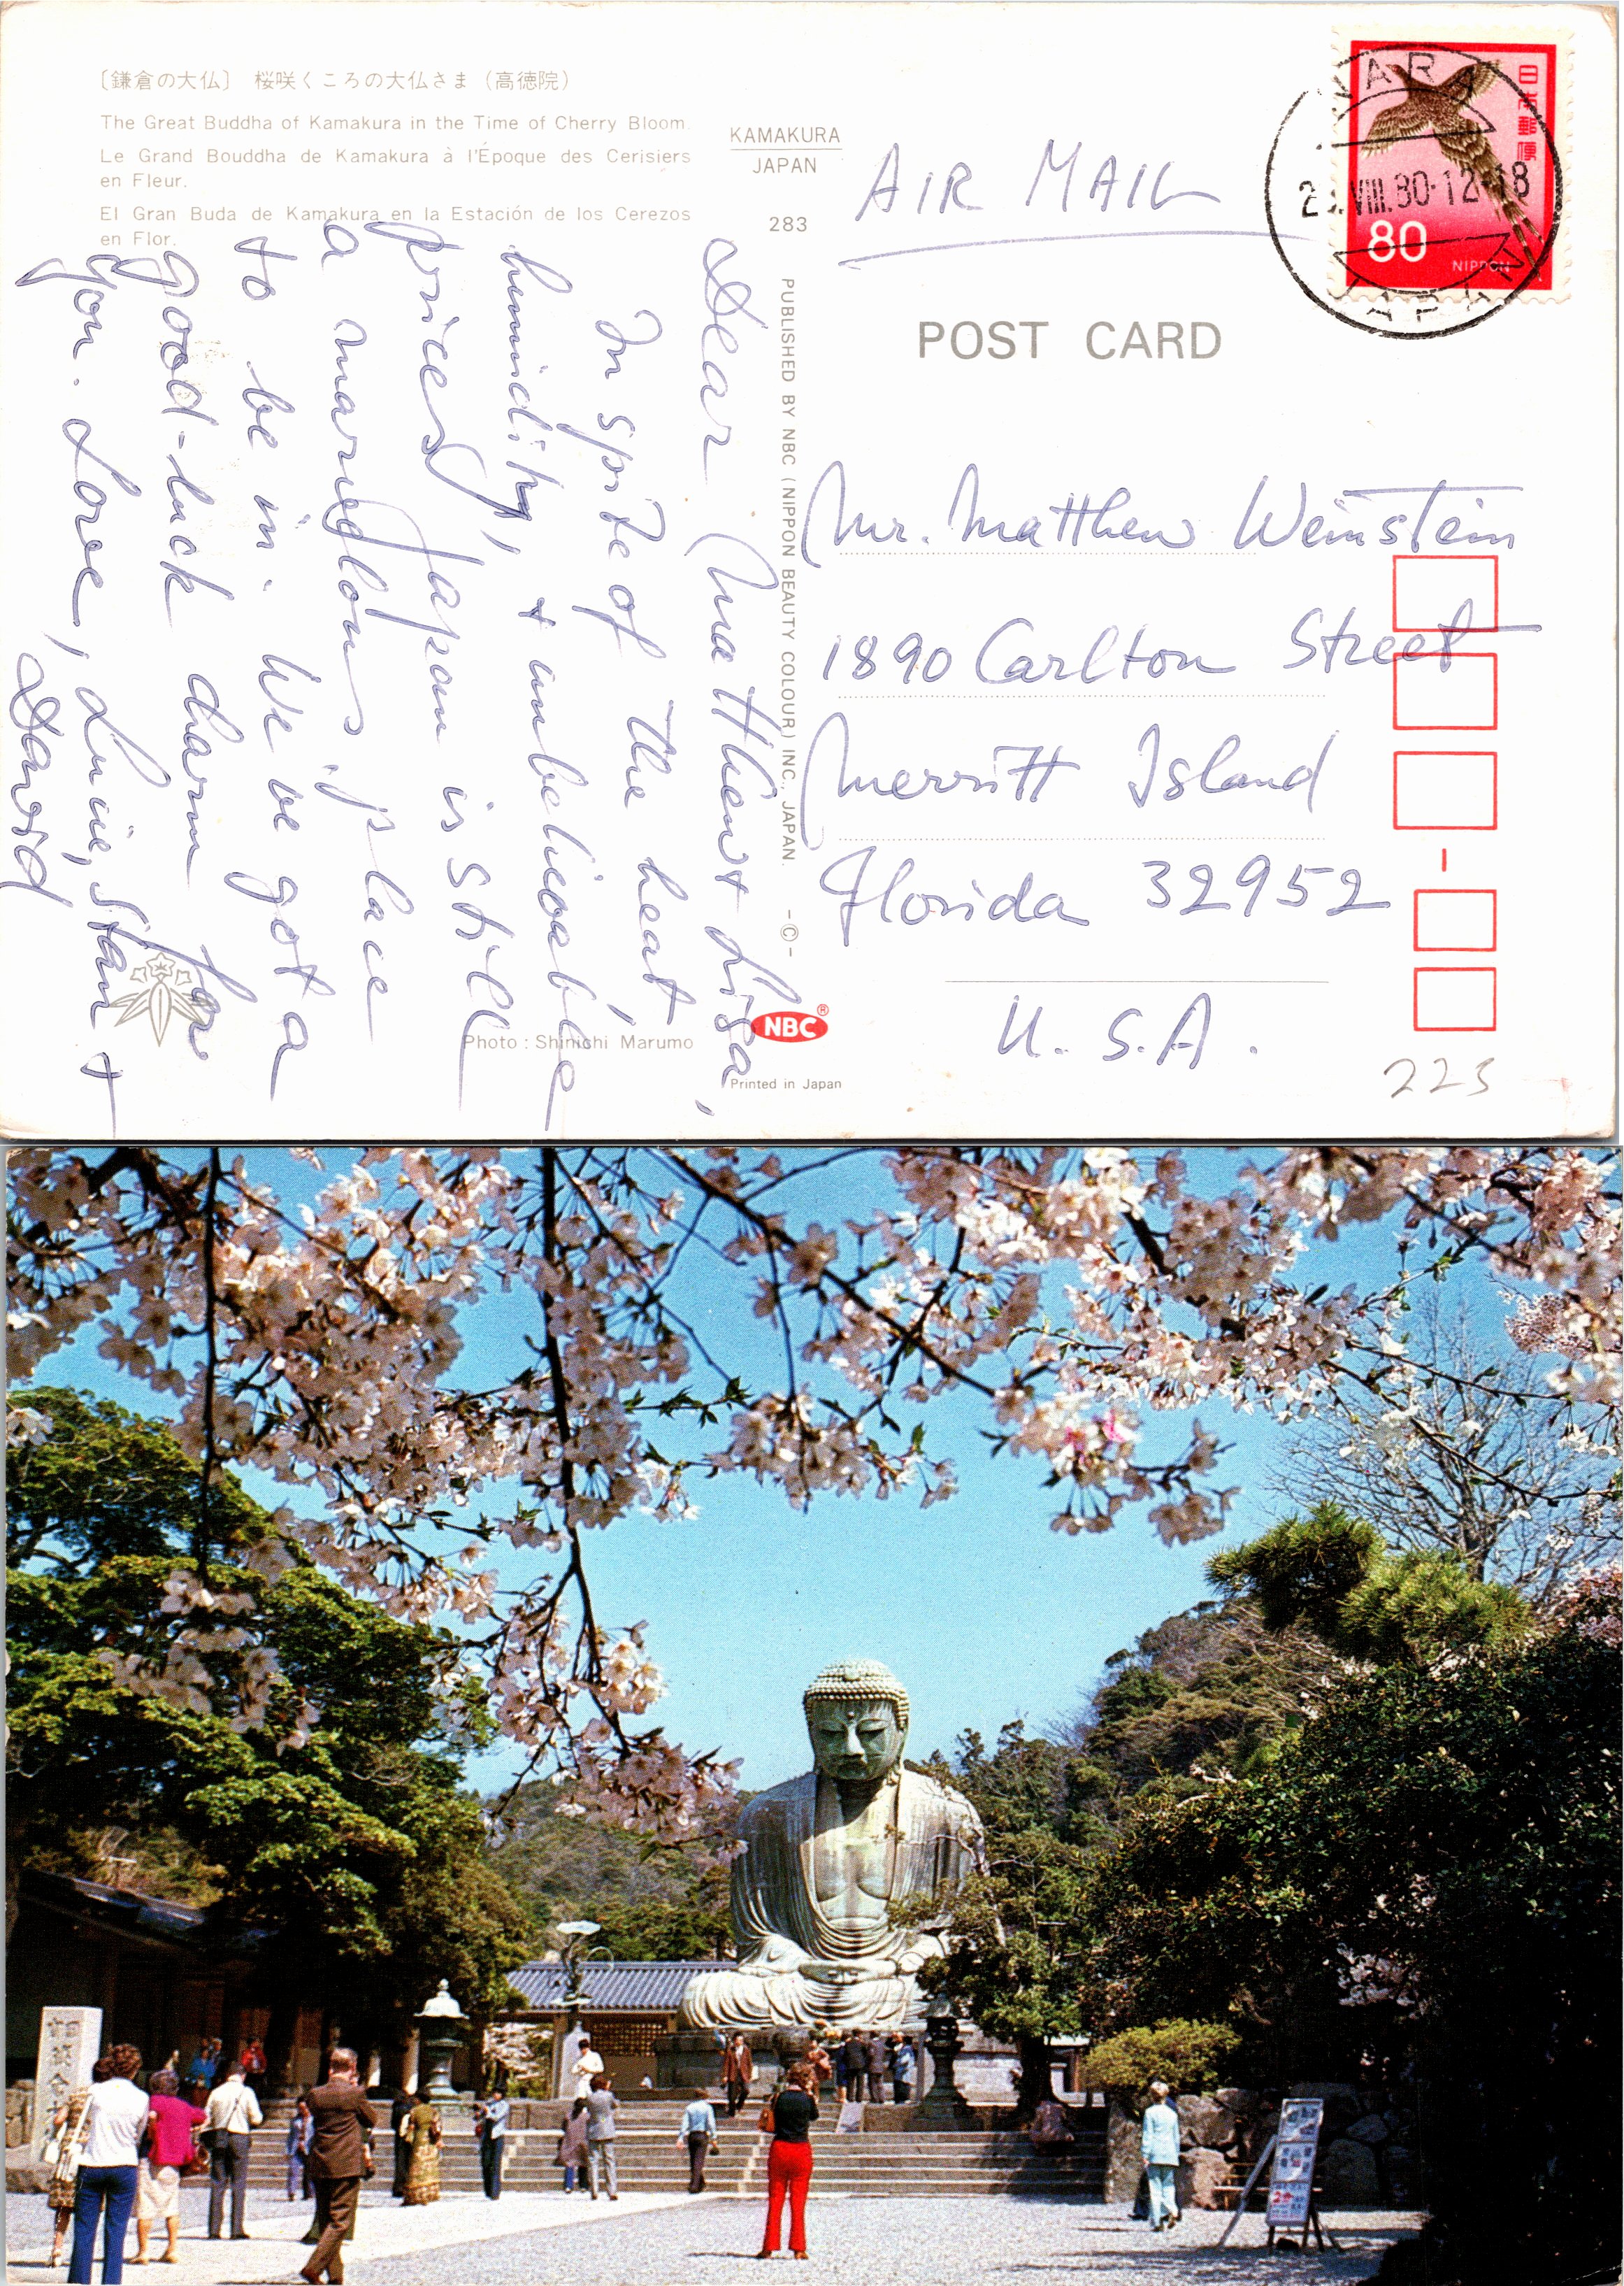 〔鎌倉の大仏〕 桜咲くころの大仏さま (高徳院)
The Great Buddha of Kamakura in the Time of Cherry Bloom.
Le Grand Bouddha de Kamakura à l'Époque des Cerisiers
en Fleur.
El Gran Buda de Kamakura en la Estación de los Cerezos
en Flor.
KAMAKURA
JAPAN
283
AIR MAIL
NARA
VIII.80·12-18
JAPAN
日本郵便
80
NIPPON
POST CARD
PUBLISHED BY NBC (NIPPON BEAUTY COLOUR) INC., JAPAN. -©-
Dear Matthew + Lisa,
In spite of the heat,
humidity, + unbelievable
prices, Japan is still
a marvelous place
to be in. We've got a
good-luck charm for
you. Love, Lucie, Stan +
David
Mr. Matthew Weinstein
1890 Carlton Street
Merritt Island
Florida 32952
U.S.A.
NBC®
Photo : Shinichi Marumo
Printed in Japan
223